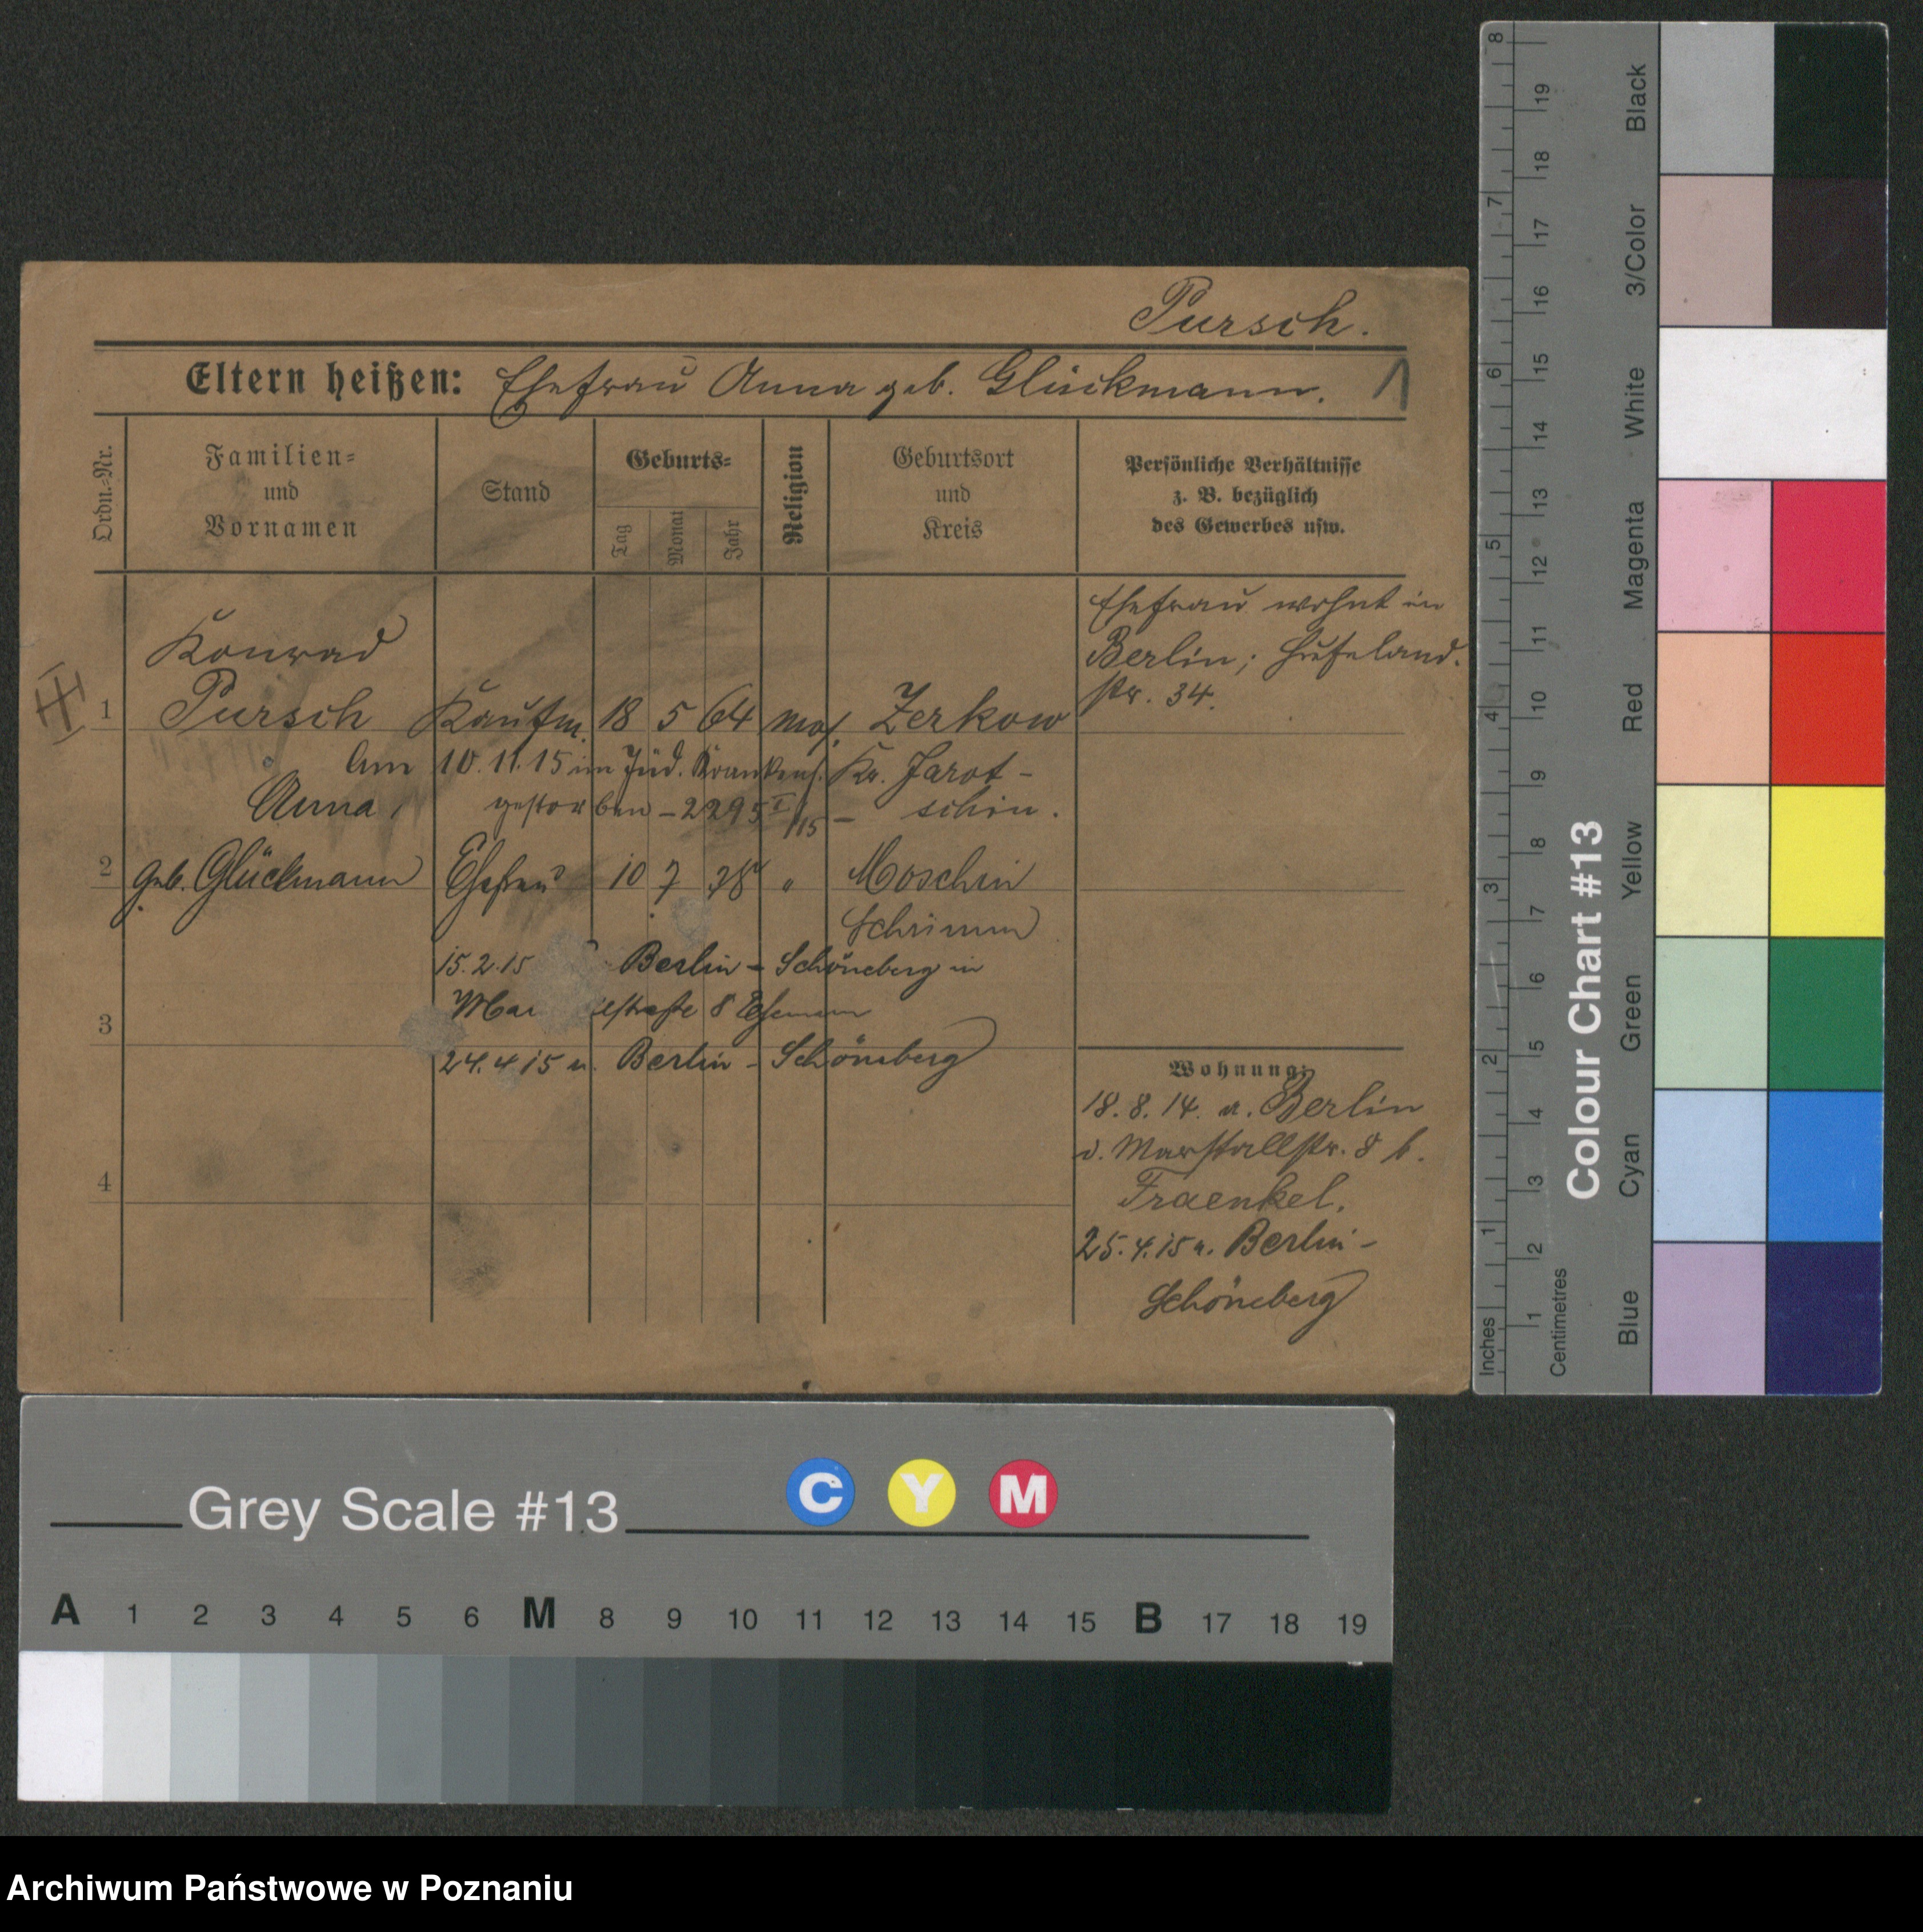 Pursch.
Eltern heißen: Ehefrau Anna geb. Glückmann.
Ordn.-Nr.
Familien=
und
Vornamen
Stand
Geburts=
Tag
Monat
Jahr
Religion
Geburtsort
und
Kreis
Persönliche Verhältnisse
z. B. bezüglich
des Gewerbes usw.
Ehefrau wohnt in
Berlin; Hufeland.
str. 34.
Konrad
1 Pursch Kaufm. 18 5 64 mos. Zerkow
Am 10.11.15 im Jüd. Krankenh. Kr. Jarot-
Anna, gestorben - 2295 I/15 - schin.
2 geb. Glückmann Ehefrau 10 7 78 " Moschin
Schrimm
15.2.15 Berlin - Schöneberg in
3 Mar 8
24.4 15 n. Berlin - Schöneberg
Wohnung:
18. 8. 14. a. Berlin
v. Marstallstr. 8 b.
Fraenkel.
4
25.4.15 n. Berlin-
Schöneberg
Grey Scale #13
C Y M
A 1 2 3 4 5 6 M 8 9 10 11 12 13 14 15 B 17 18 19
Colour Chart #13
Blue Cyan Green Yellow Red Magenta White 3/Color Black
Inches 1 2 3 4 5 6 7 8
Centimetres 1 2 3 4 5 6 7 8 9 10 11 12 13 14 15 16 17 18 19
Archiwum Państwowe w Poznaniu